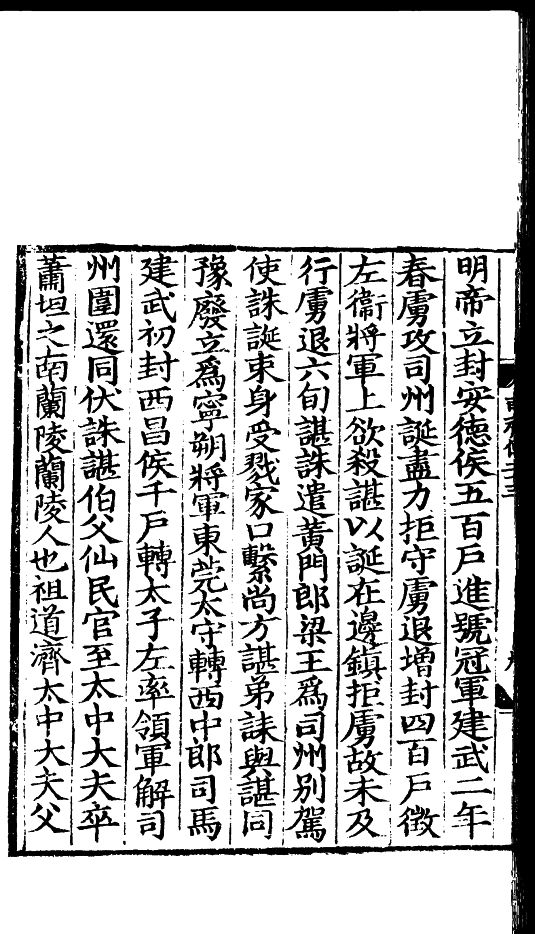 明帝立封安德侯五百戶進號冠軍建武二年
春虜攻司州誕盡力拒守虜退增封四百戶徵
左衞將軍上欲殺諶以誕在邊鎮拒虜故未及
行虜退六旬諶誅遣黃門郎梁王爲司州別駕
使誅誕束身受戮家口繫尚方諶弟誄與諶同
豫廢立爲寧朔將軍東莞太守轉西中郎司馬
建武初封西昌侯千戶轉太子左率領軍解司
州圍還同伏誅諶伯父仙民官至太中大夫卒
蕭坦之南蘭陵蘭陵人也祖道濟太中大夫父